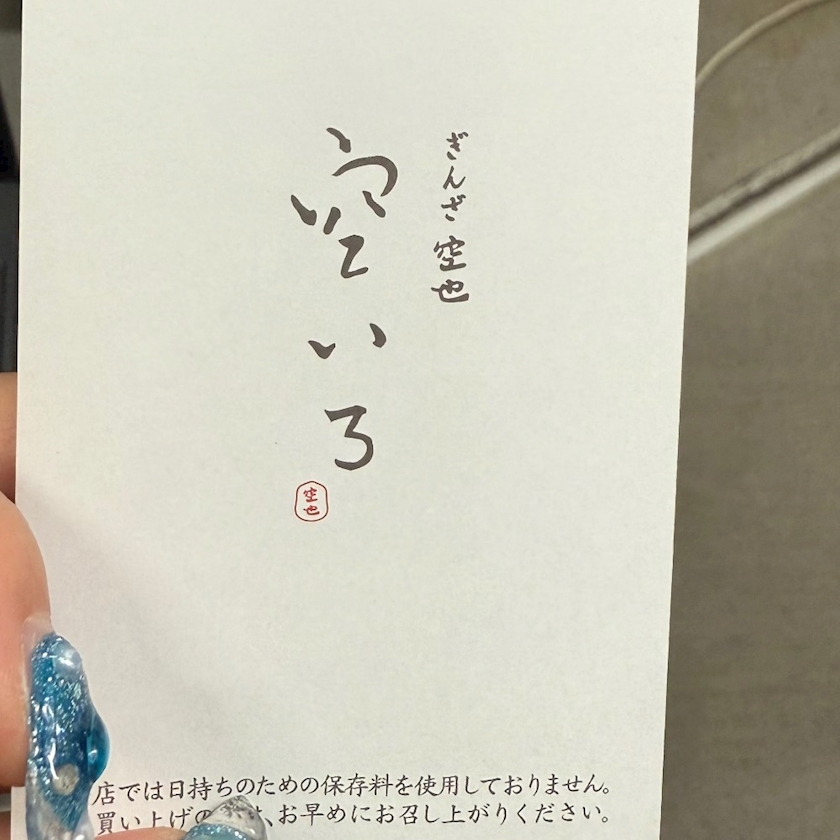 ぎんざ 空也
空いろ
空也
店では日持ちのための保存料を使用しておりません。
買い上げの、お早めにお召し上がりください。